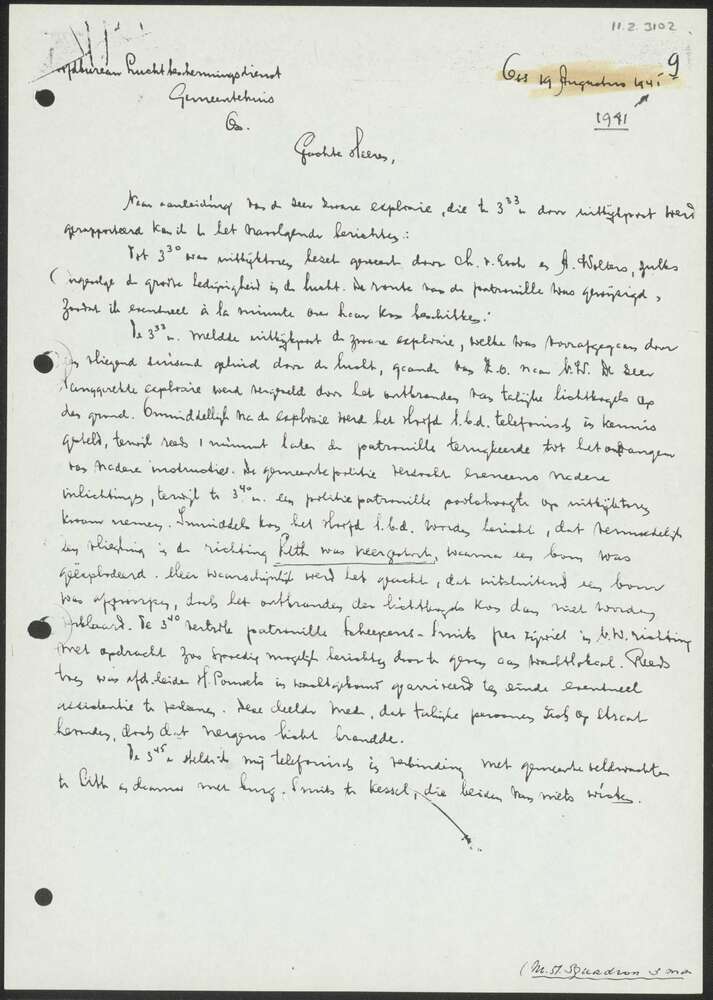 11.2.3102
Luchtbeschermingsdienst Oss 19 Augustus 1941 9
Gemeentehuis 1941
Oss.
Geachte Heeren,
Naar aanleiding van de zeer zware explosie, die te 3³³ u door uitkijkpost werd
gerapporteerd kan ik U het navolgende berichten:
Tot 3³⁰ was uitkijktoren bezet geweest door Ch. v. Esch en A. Wolters, zulks
ingevolge de groote bedrijvigheid in de lucht. De route van de patrouille was gewijzigd,
zoodat ik eventueel à la minute over haar kon beschikken.
Te 3³³ u. meldde uitkijkpost de zware explosie, welke was voorafgegaan door
een vliegend suisend geluid door de lucht, gaande van Z.O. naar N.W. De zeer
langgerekte explosie werd vergezeld door het ontbranden van talrijke lichtkogels op
den grond. Onmiddellijk na de explosie werd het Hoofd l.b.d. telefonisch in kennis
gesteld, terwijl reeds 1 minuut later de patrouille terugkeerde tot het ontvangen
van nadere instructies. De gemeentepolitie verzocht eveneens nadere
inlichtingen, terwijl te 3⁴⁰ u. een politiepatrouille poolshoogte op uitkijktoren
kwam nemen. Inmiddels kon het Hoofd l.b.d. worden bericht, dat vermoedelijk
een vliegtuig in de richting Lith was neergestort, waarna een bom was
geëxplodeerd. Meer waarschijnlijk werd het geacht, dat uitsluitend een bom
was afgeworpen, doch het ontbranden der lichtkogels kon dan niet worden
verklaard. Te 3⁴⁰ vertrok patrouille Scheepens-Smits per rijwiel in N.W. richting
met opdracht zoo spoedig mogelijk berichten door te geven aan wachtlokaal. Reeds
was afd. leider H. in wachtlokaal gearriveerd ten einde eventueel
assistentie te verleenen. Deze deelde mede, dat talrijke personen zich op straat
bevonden, doch dat nergens licht brandde.
Te 3⁴⁵ u stelde ik mij telefonisch in verbinding met gemeente veldwachter
te Lith en daarna met burg. Smits te Kessel, die beiden van niets wisten.
(M.St. Squadron